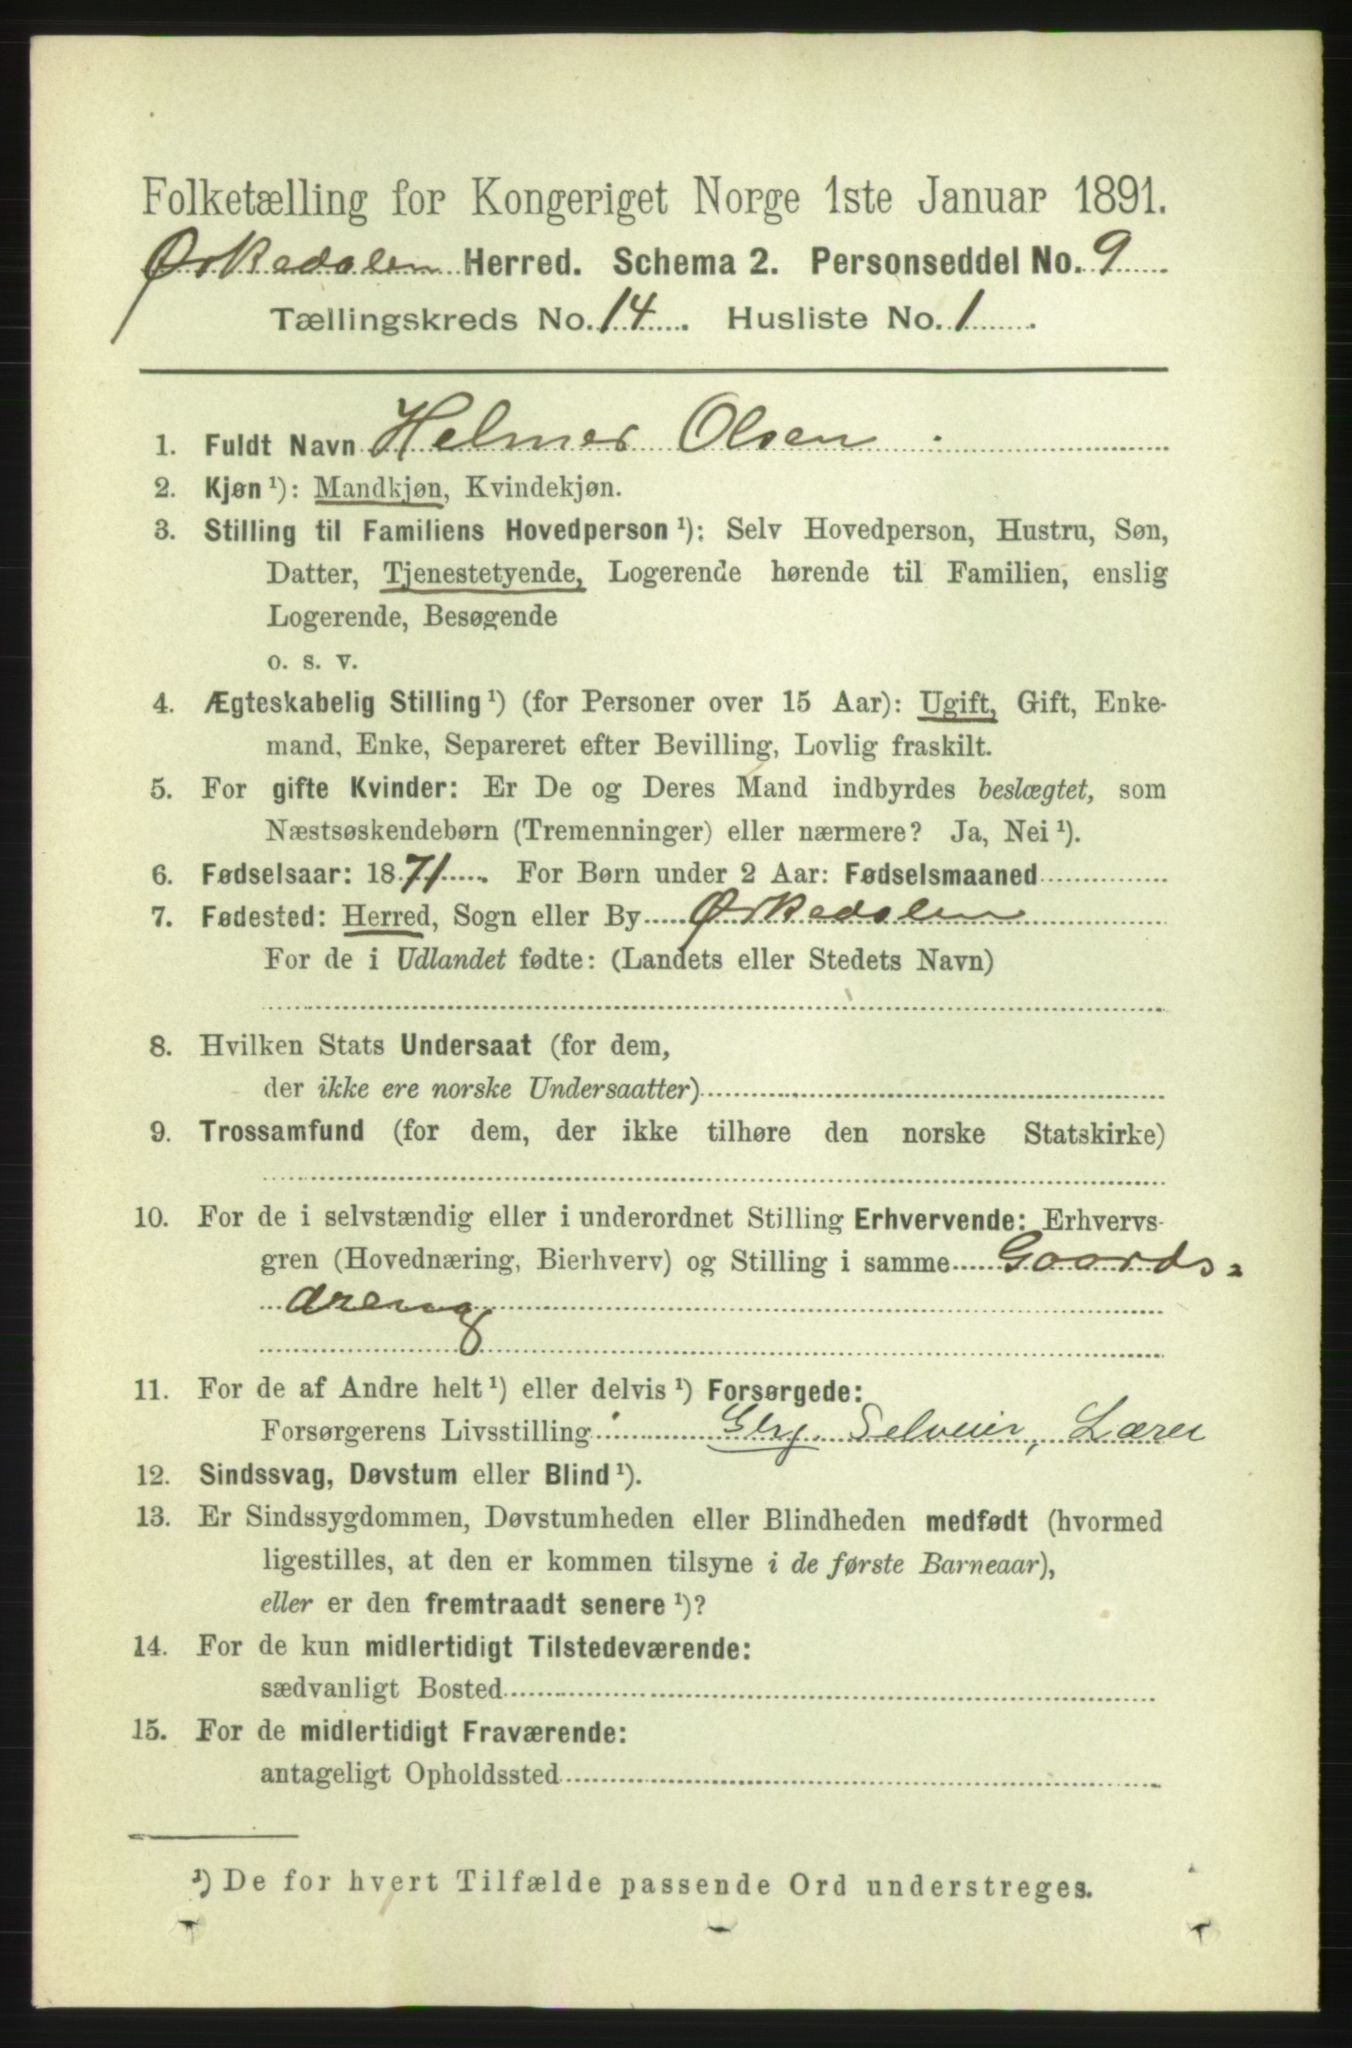 Folketælling for Kongeriget Norge 1ste Januar 1891.
Ørkedalen Herred. Schema 2. Personseddel No. 9
Tællingskreds No. 14. Husliste No. 1.
1. Fuldt Navn Helmer Olsen
2. Kjøn ¹): Mandkjøn, Kvindekjøn.
3. Stilling til Familiens Hovedperson ¹): Selv Hovedperson, Hustru, Søn,
Datter, Tjenestetyende, Logerende hørende til Familien, enslig
Logerende, Besøgende
o. s. v.
4. Ægteskabelig Stilling ¹) (for Personer over 15 Aar): Ugift, Gift, Enke-
mand, Enke, Separeret efter Bevilling, Lovlig fraskilt.
5. For gifte Kvinder: Er De og Deres Mand indbyrdes beslægtet, som
Næstsøskendebørn (Tremenninger) eller nærmere? Ja, Nei ¹).
6. Fødselsaar: 1871. For Børn under 2 Aar: Fødselsmaaned
7. Fødested: Herred, Sogn eller By Ørkedalen
For de i Udlandet fødte: (Landets eller Stedets Navn)
8. Hvilken Stats Undersaat (for dem,
der ikke ere norske Undersaatter)
9. Trossamfund (for dem, der ikke tilhøre den norske Statskirke)
10. For de i selvstændig eller i underordnet Stilling Erhvervende: Erhvervs-
gren (Hovednæring, Bierhverv) og Stilling i samme Gaards-
dreng
11. For de af Andre helt ¹) eller delvis ¹) Forsørgede:
Forsørgerens Livsstilling Selveier, Lærer
12. Sindssvag, Døvstum eller Blind ¹).
13. Er Sindssygdommen, Døvstumheden eller Blindheden medfødt (hvormed
ligestilles, at den er kommen tilsyne i de første Barneaar),
eller er den fremtraadt senere ¹)?
14. For de kun midlertidigt Tilstedeværende:
sædvanligt Bosted
15. For de midlertidigt Fraværende:
antageligt Opholdssted
¹) De for hvert Tilfælde passende Ord understreges.